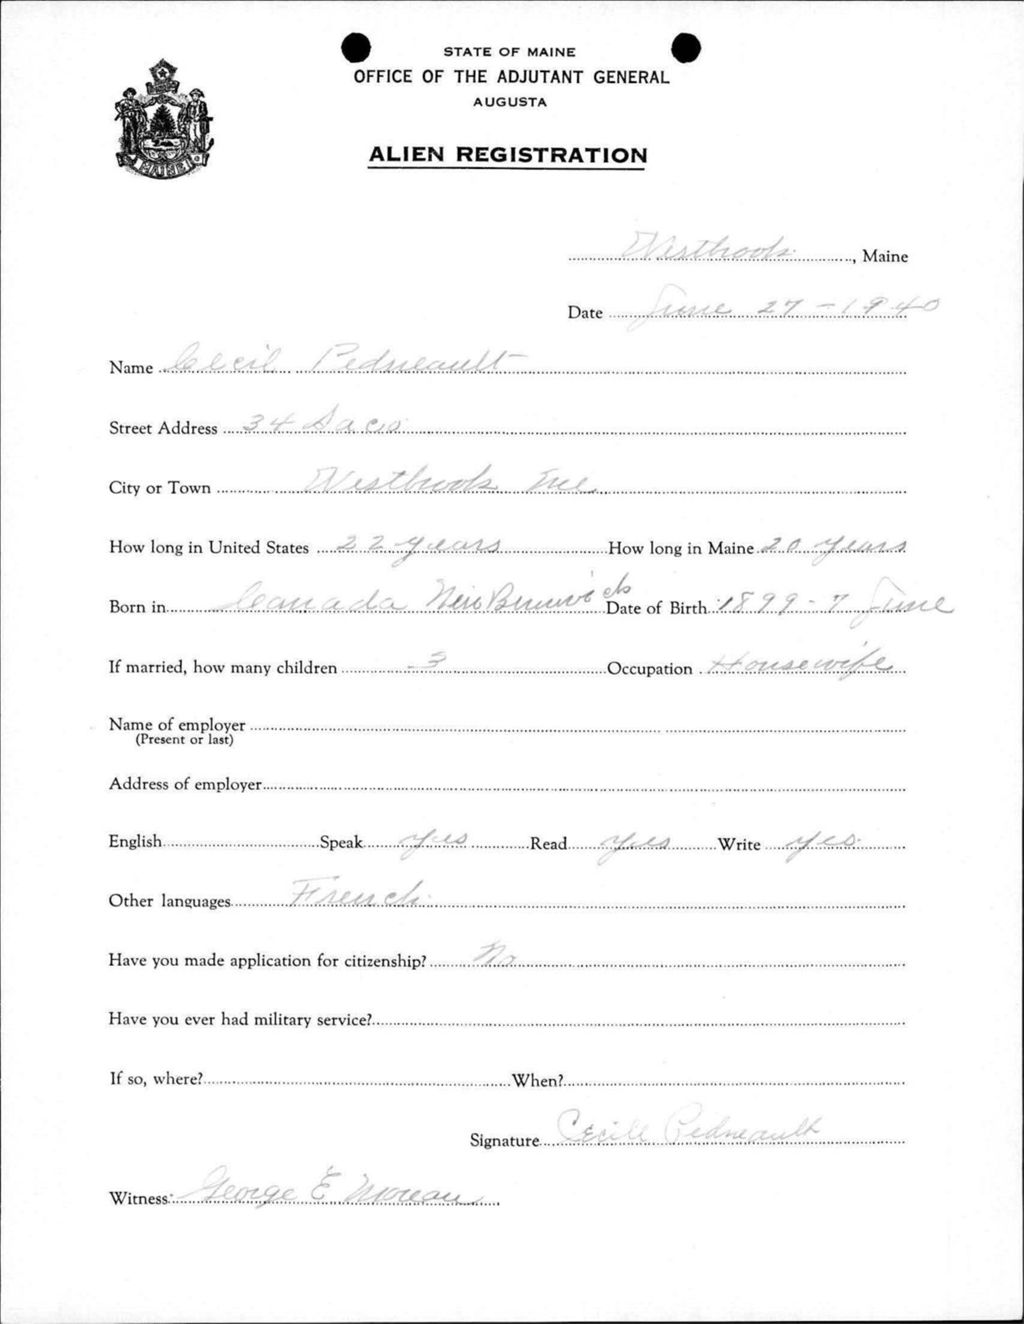 STATE OF MAINE
OFFICE OF THE ADJUTANT GENERAL
AUGUSTA
ALIEN REGISTRATION
MAINE
Westbrook, Maine
Date June 27-1940
Name Cecil Pedneault
Street Address 34 Saco
City or Town Westbrook Me.
How long in United States 22 years How long in Maine 20 years
Born in Canada New Brunwick Date of Birth 1899-7 June
If married, how many children 3 Occupation Housewife
Name of employer
(Present or last)
Address of employer
English Speak yes Read yes Write yes
Other languages French
Have you made application for citizenship? No
Have you ever had military service?
If so, where? When?
Signature Cecill Pedneault
Witness: George E Moreau